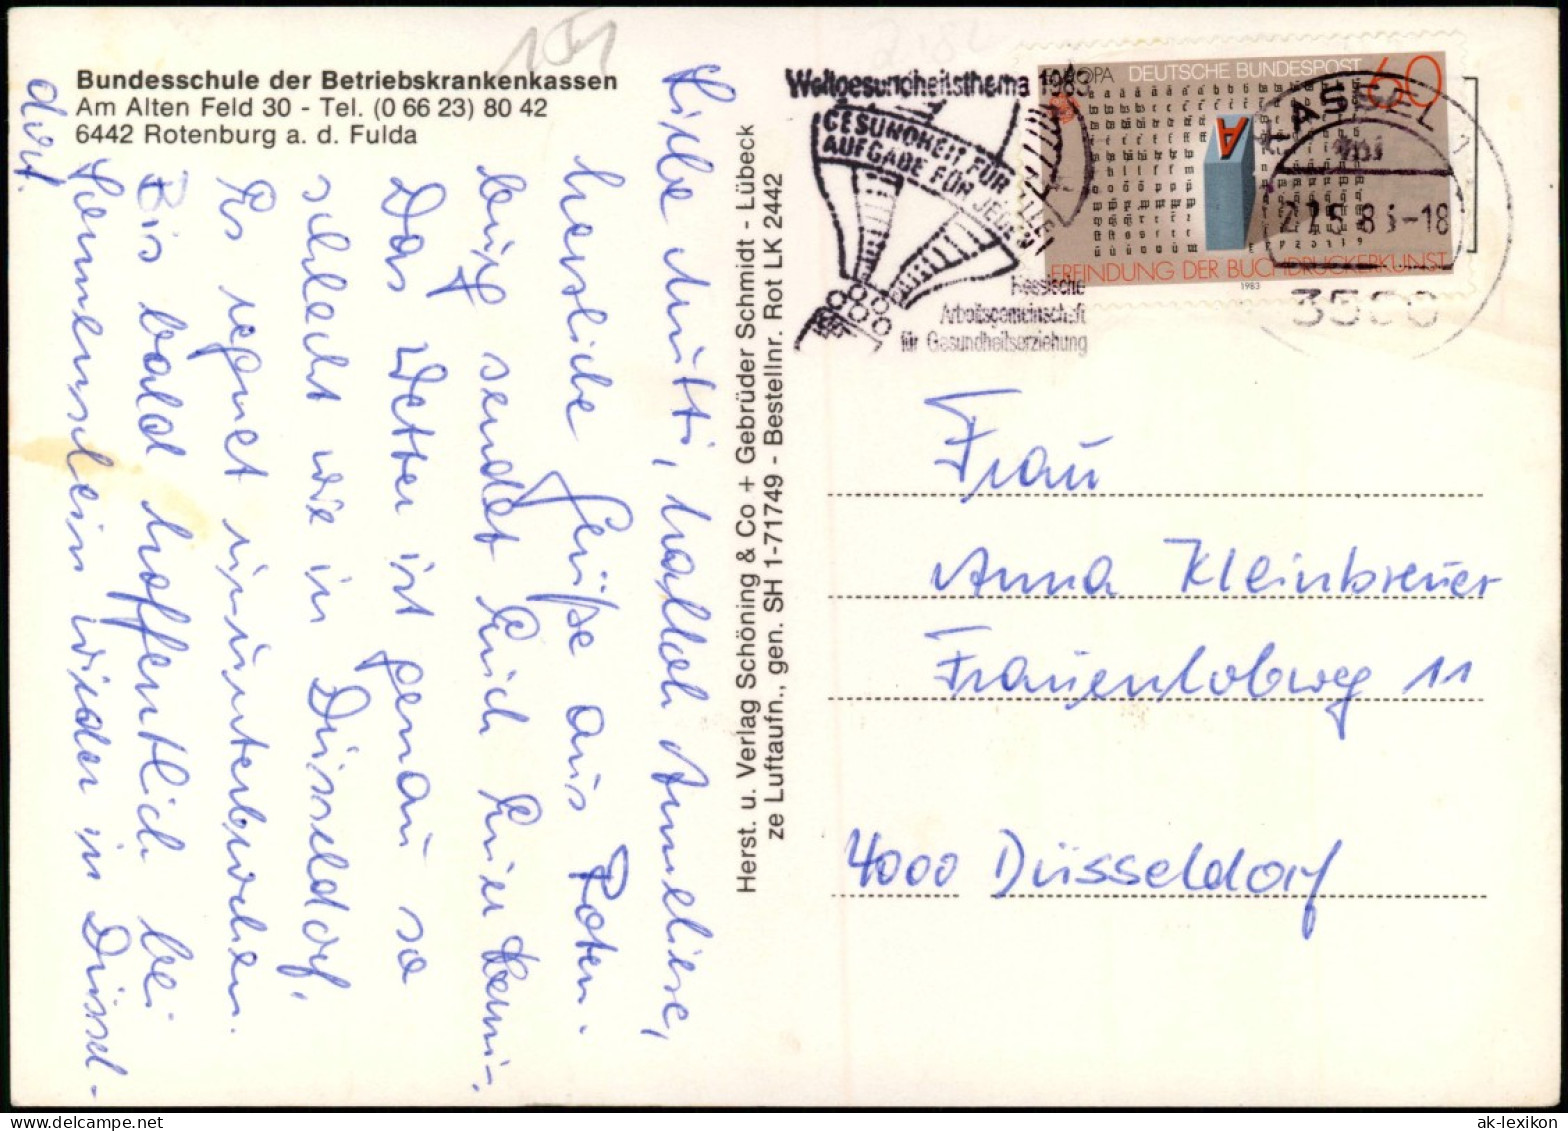 Bundesschule der Betriebskrankenkassen
Am Alten Feld 30 - Tel. (0 66 23) 80 42
6442 Rotenburg a. d. Fulda
Liebe Mutti, hallo Anneliese,
herzliche Grüße aus Roten-
burg sendet Euch Euer
Das Wetter ist genau so
schlecht wie in Düsseldorf.
Es regnet ununterbrochen.
Bis bald hoffentlich bei
Sonnenschein wieder in Düssel-
dorf.
Herst. u. Verlag Schöning & Co + Gebrüder Schmidt - Lübeck
ze Luftaufn., gen. SH 1-71749 - Bestellnr. Rot LK 2442
Weltgesundheitsthema 1983
GESUNDHEIT FÜR
AUFGABE FÜR JEDEN
Hessische
Arbeitsgemeinschaft
für Gesundheitserziehung
DEUTSCHE BUNDESPOST 60
A
ERFINDUNG DER BUCHDRUCKERKUNST
1983
KASSEL 1
-18
3500
Frau
Anna Kleinbreuer
Frauenlobweg 11
4000 Düsseldorf
ak-lexikon